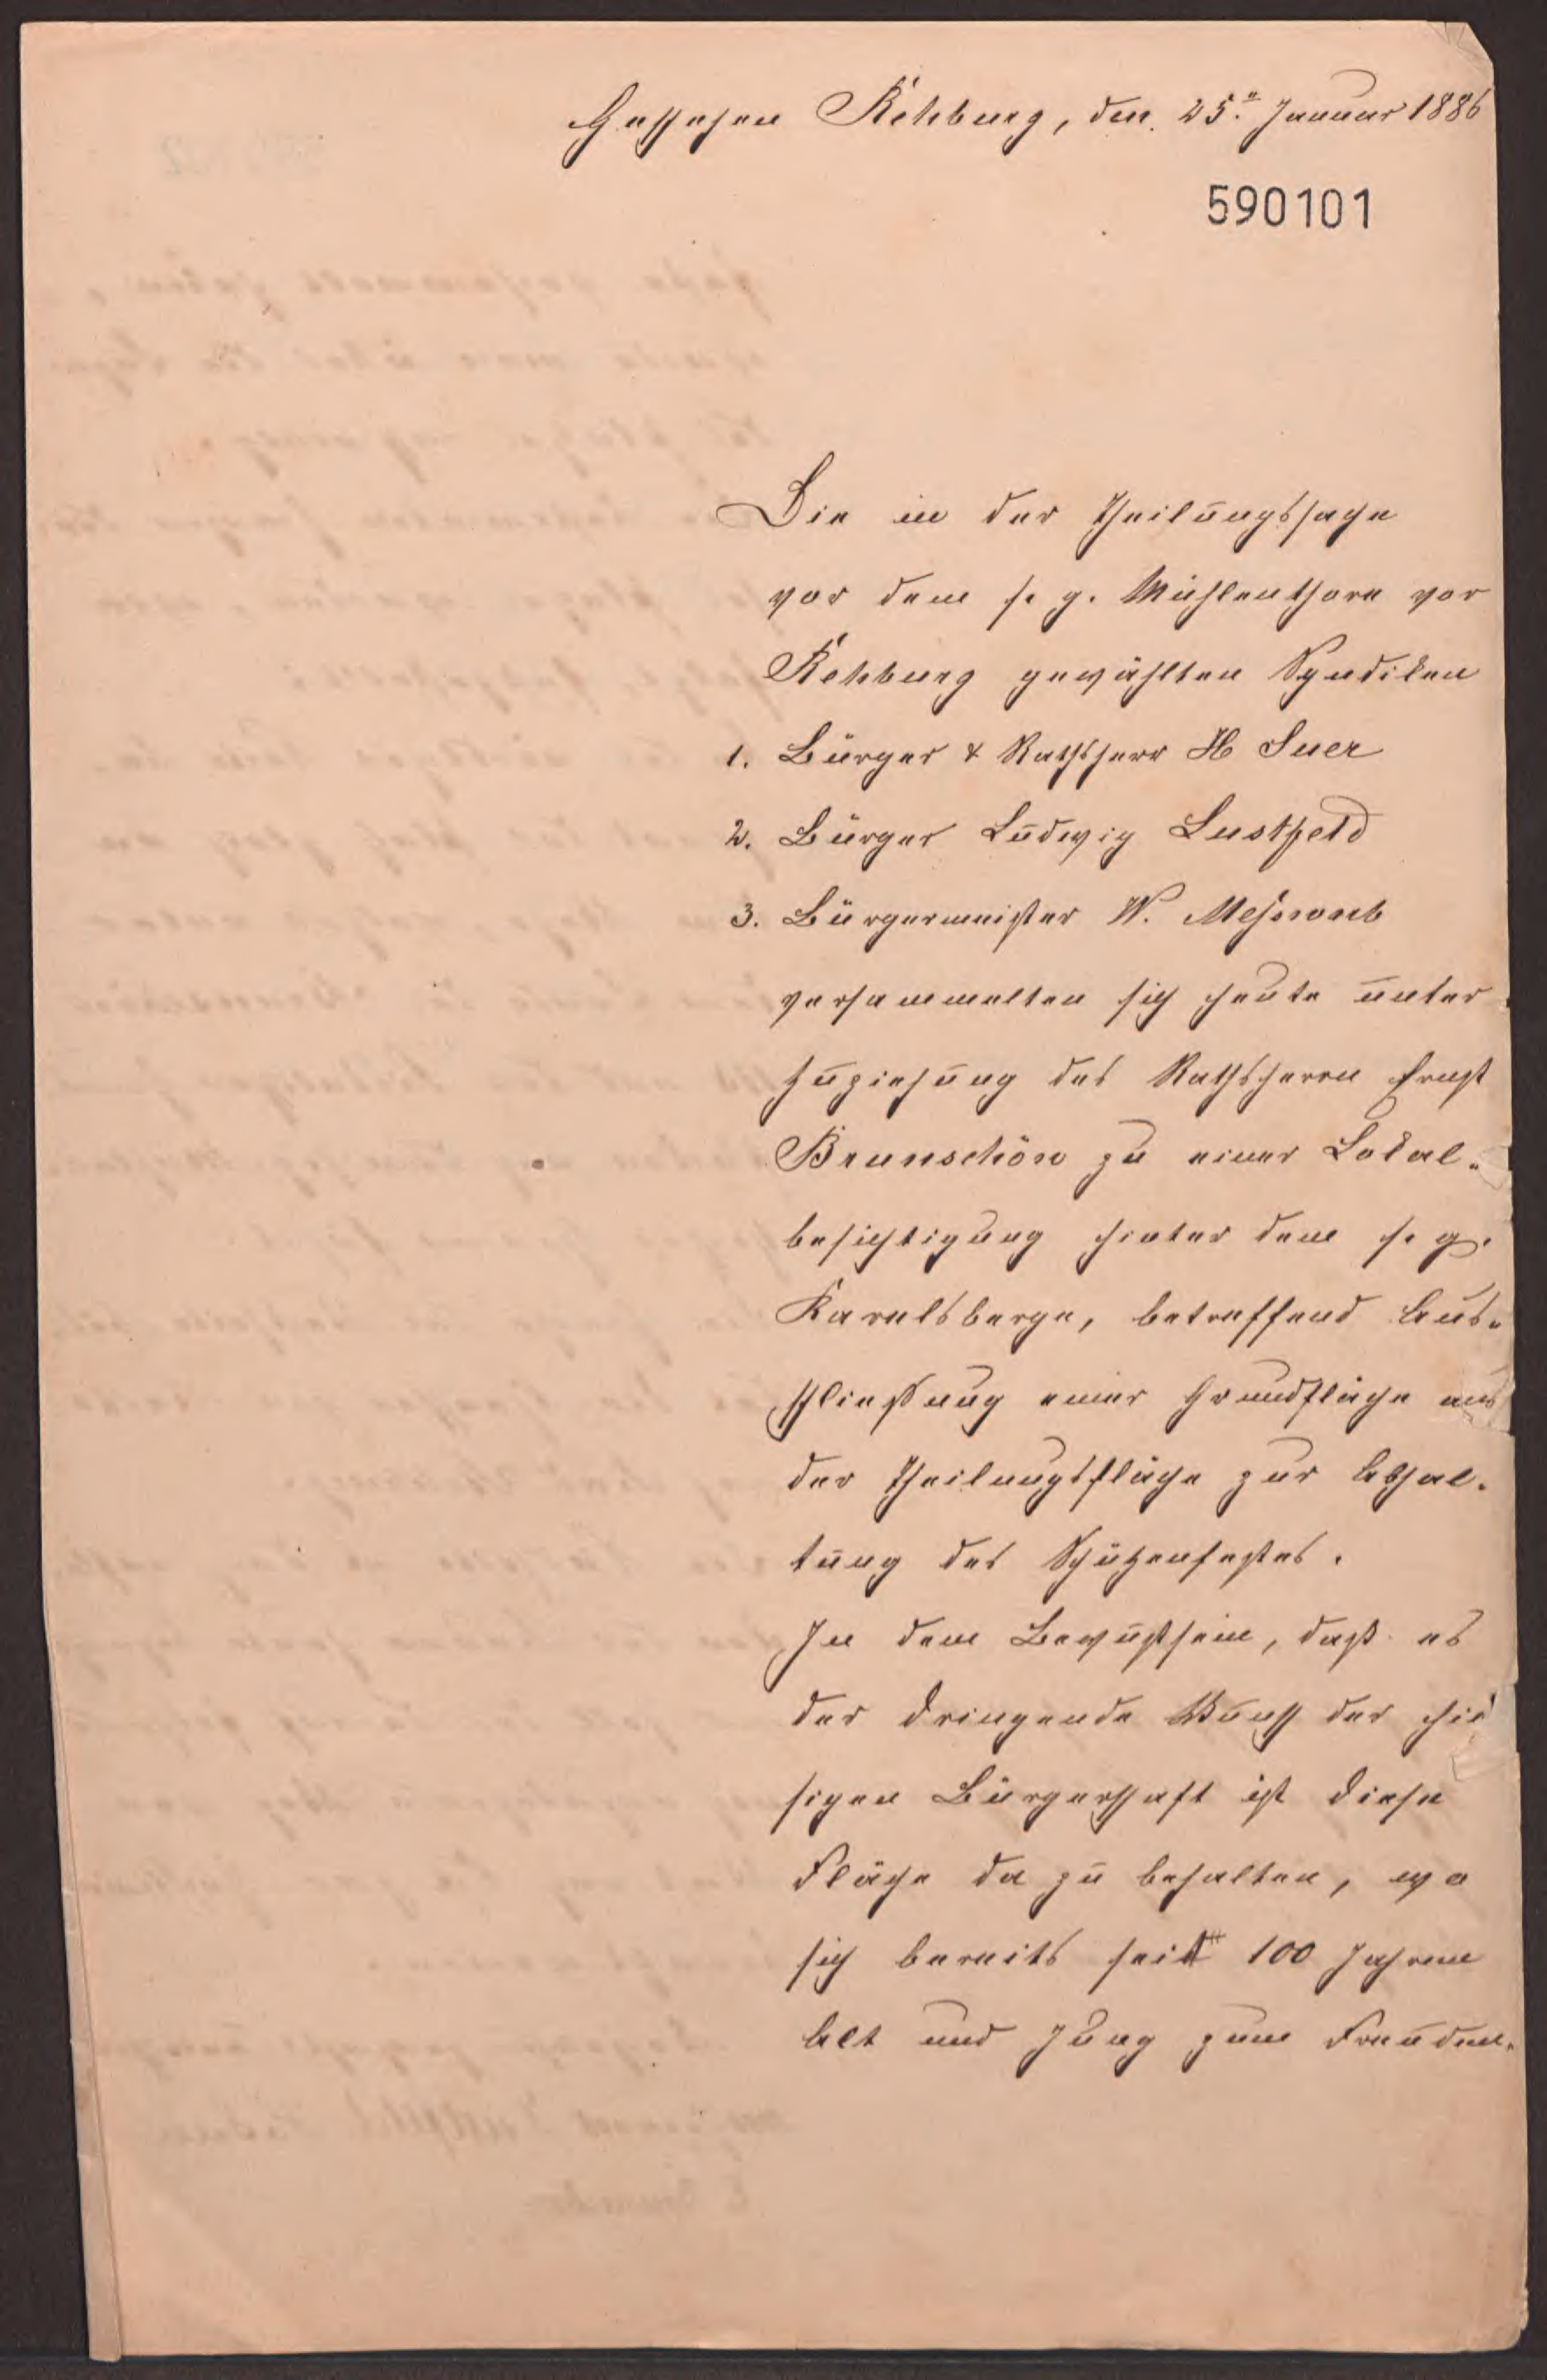 Geschehen Rehburg, den 25.ⁿ Januar 1886
590101
Die in der Theilungssache
vor dem s. g. Mühlenthore vor
Rehburg gewählten Syndiken
1. Bürger & Rathsherr H Suer
2. Bürger Ludwig Lustfeld
3. Bürgermeister W. Meßwarb
versammelten sich heute unter
Zuziehung des Rathsherrn Ernst
Brunschön zu einer Lokal-
besichtigung hinter dem s. g.
Karelsberge, betreffend Aus-
schließung einer Grundfläche aus
der Theilungsfläche zur Abhal-
tung des Schützenfestes.
In dem Bewußtsein, daß es
der dringende Wunsch der hie
sigen Bürgerschaft ist diese
Fläche da zu behalten, wo
sich bereits seit 100 Jahren
Alt und Jung zum Freuden-